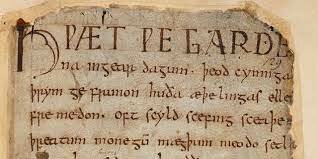 HǷÆT ǷE GARDE
na ingear dagum. þeod cyninga
þrym ge frunon huða æþelingas elle
fre medon. oft scyld scefing sceaþe
þreatum monegū mægþum meodo setla